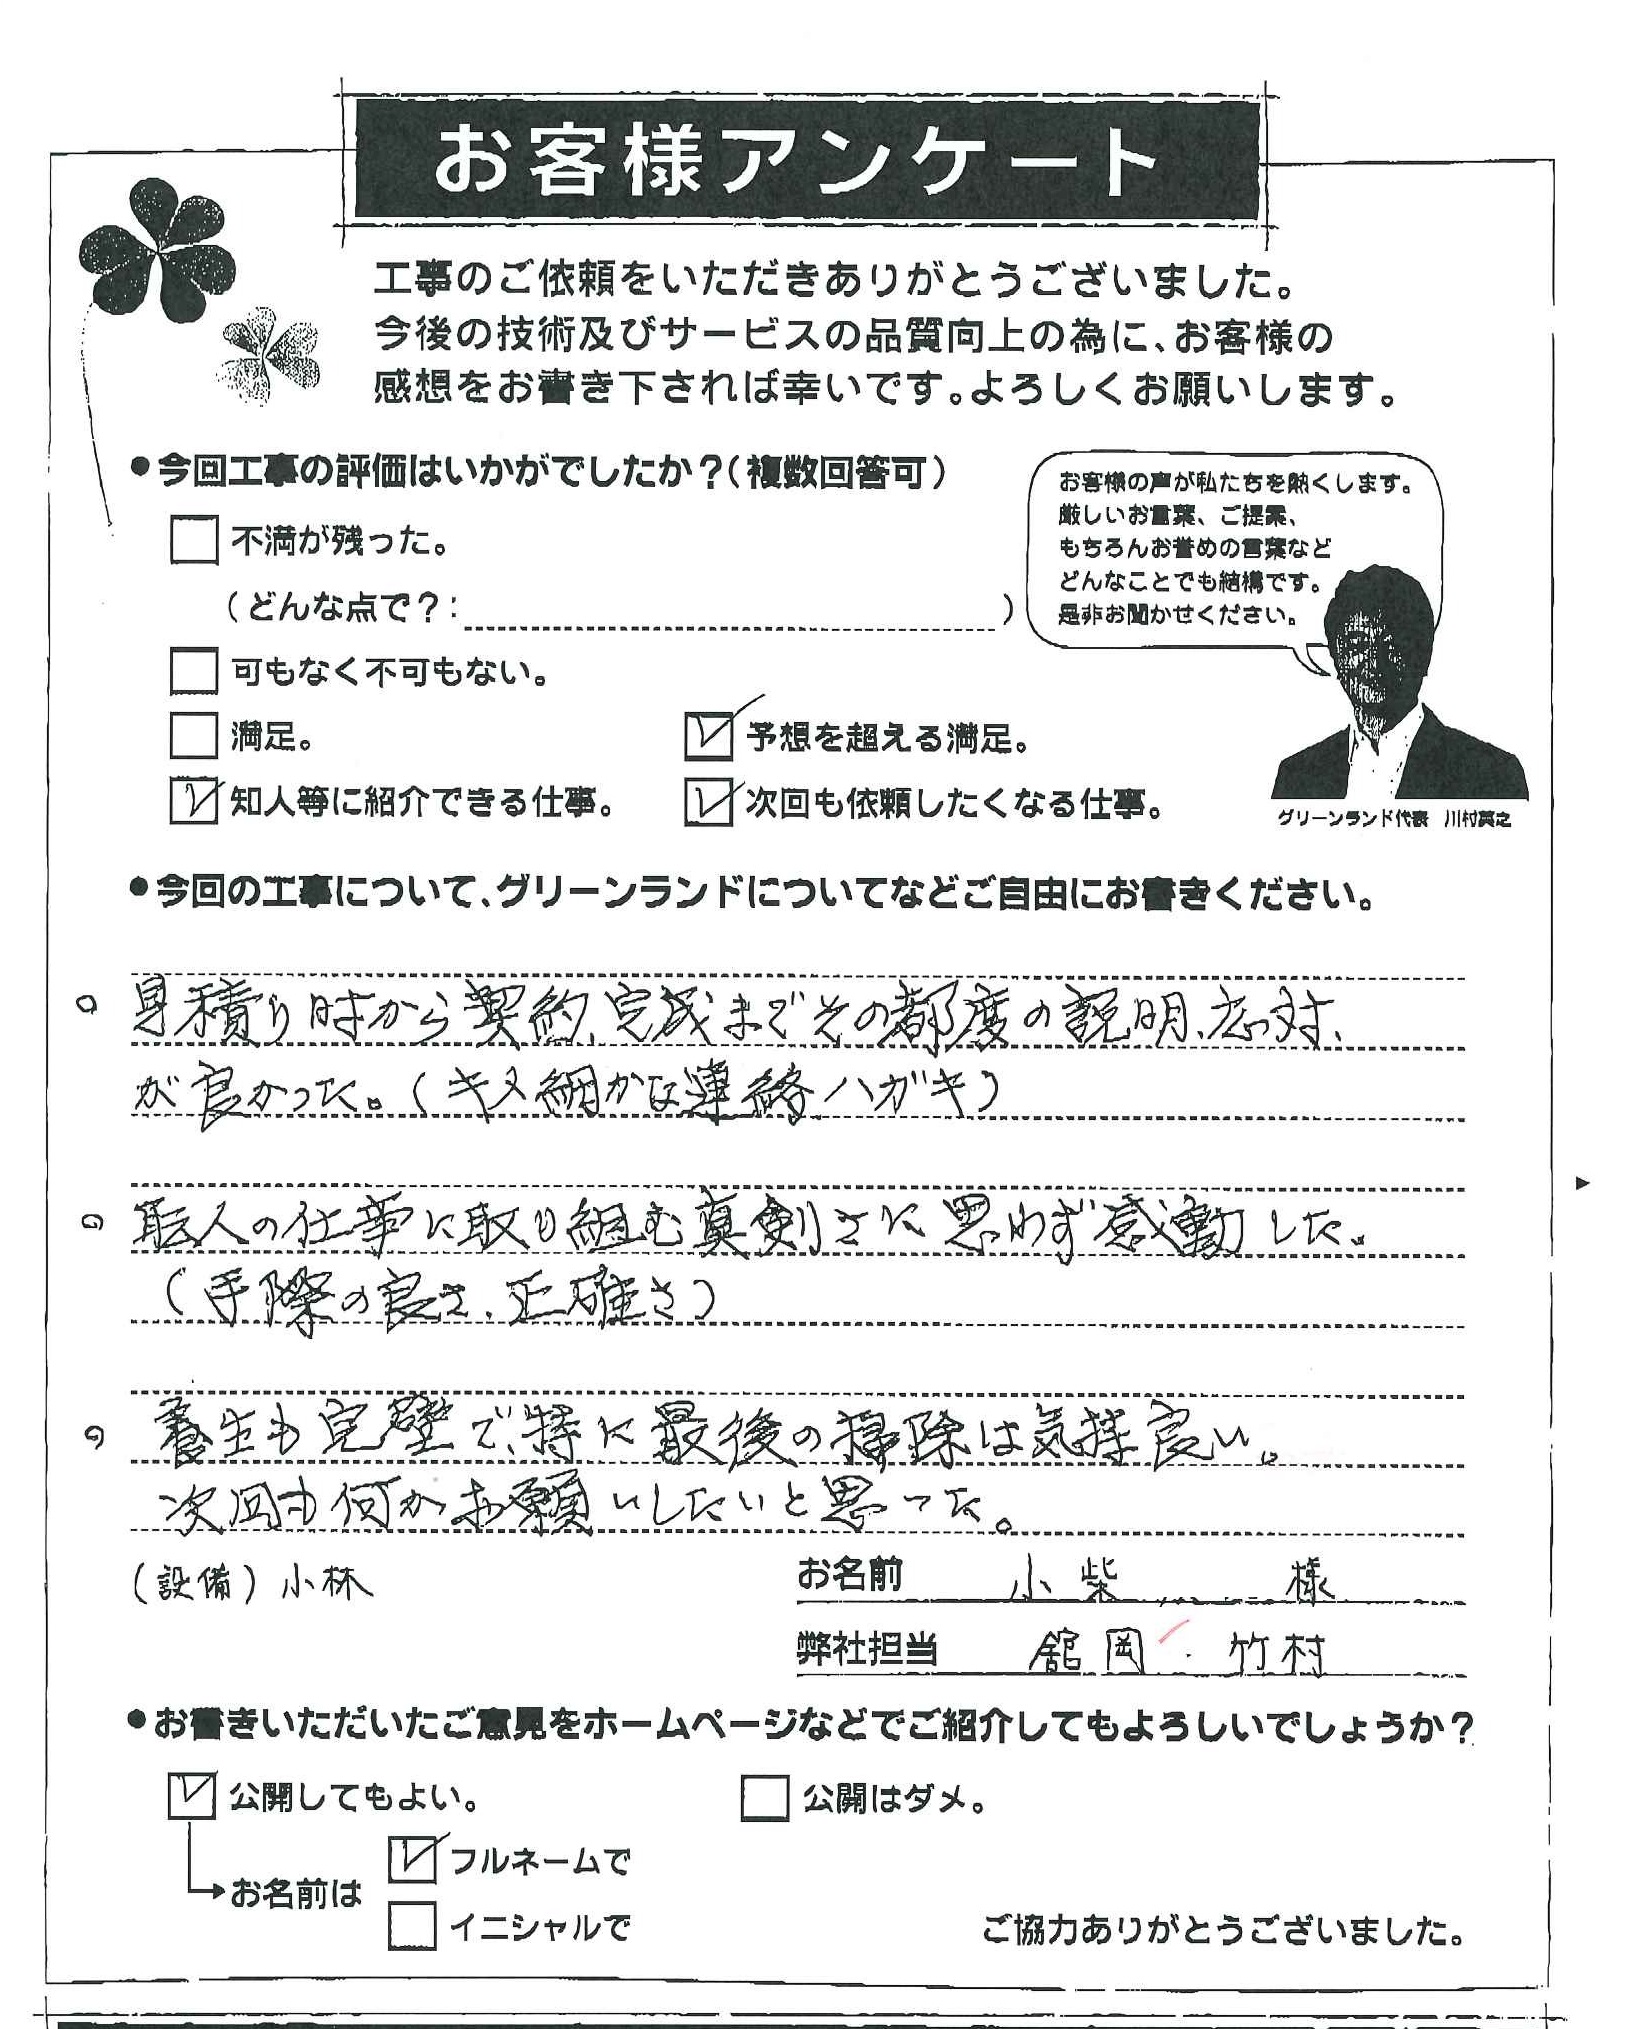 お客様アンケート
工事のご依頼をいただきありがとうございました。
今後の技術及びサービスの品質向上の為に、お客様の
感想をお書き下されば幸いです。よろしくお願いします。
●今回工事の評価はいかがでしたか？(複数回答可)
不満が残った。
(どんな点で？: )
可もなく不可もない。
満足。
予想を超える満足。
知人等に紹介できる仕事。
次回も依頼したくなる仕事。
お客様の声が私たちを熱くします。
厳しいお言葉、ご提案、
もちろんお誉めの言葉など
どんなことでも結構です。
是非お聞かせください。
グリーンランド代表 川村英之
●今回の工事について、グリーンランドについてなどご自由にお書きください。
○ 見積り時から契約、完成までその都度の説明、応対、
が良かった。(キメ細かな連絡ハガキ)
○ 職人の仕事に取り組む真剣さに思わず感動した。
(手際の良さ、正確さ)
○ 養生も完璧で、特に最後の掃除は気持良い。
次回も何かお願いしたいと思った。
(設備) 小林
お名前 小柴 様
弊社担当 舘岡・竹村
●お書きいただいたご意見をホームページなどでご紹介してもよろしいでしょうか？
公開してもよい。
公開はダメ。
お名前は
フルネームで
イニシャルで
ご協力ありがとうございました。